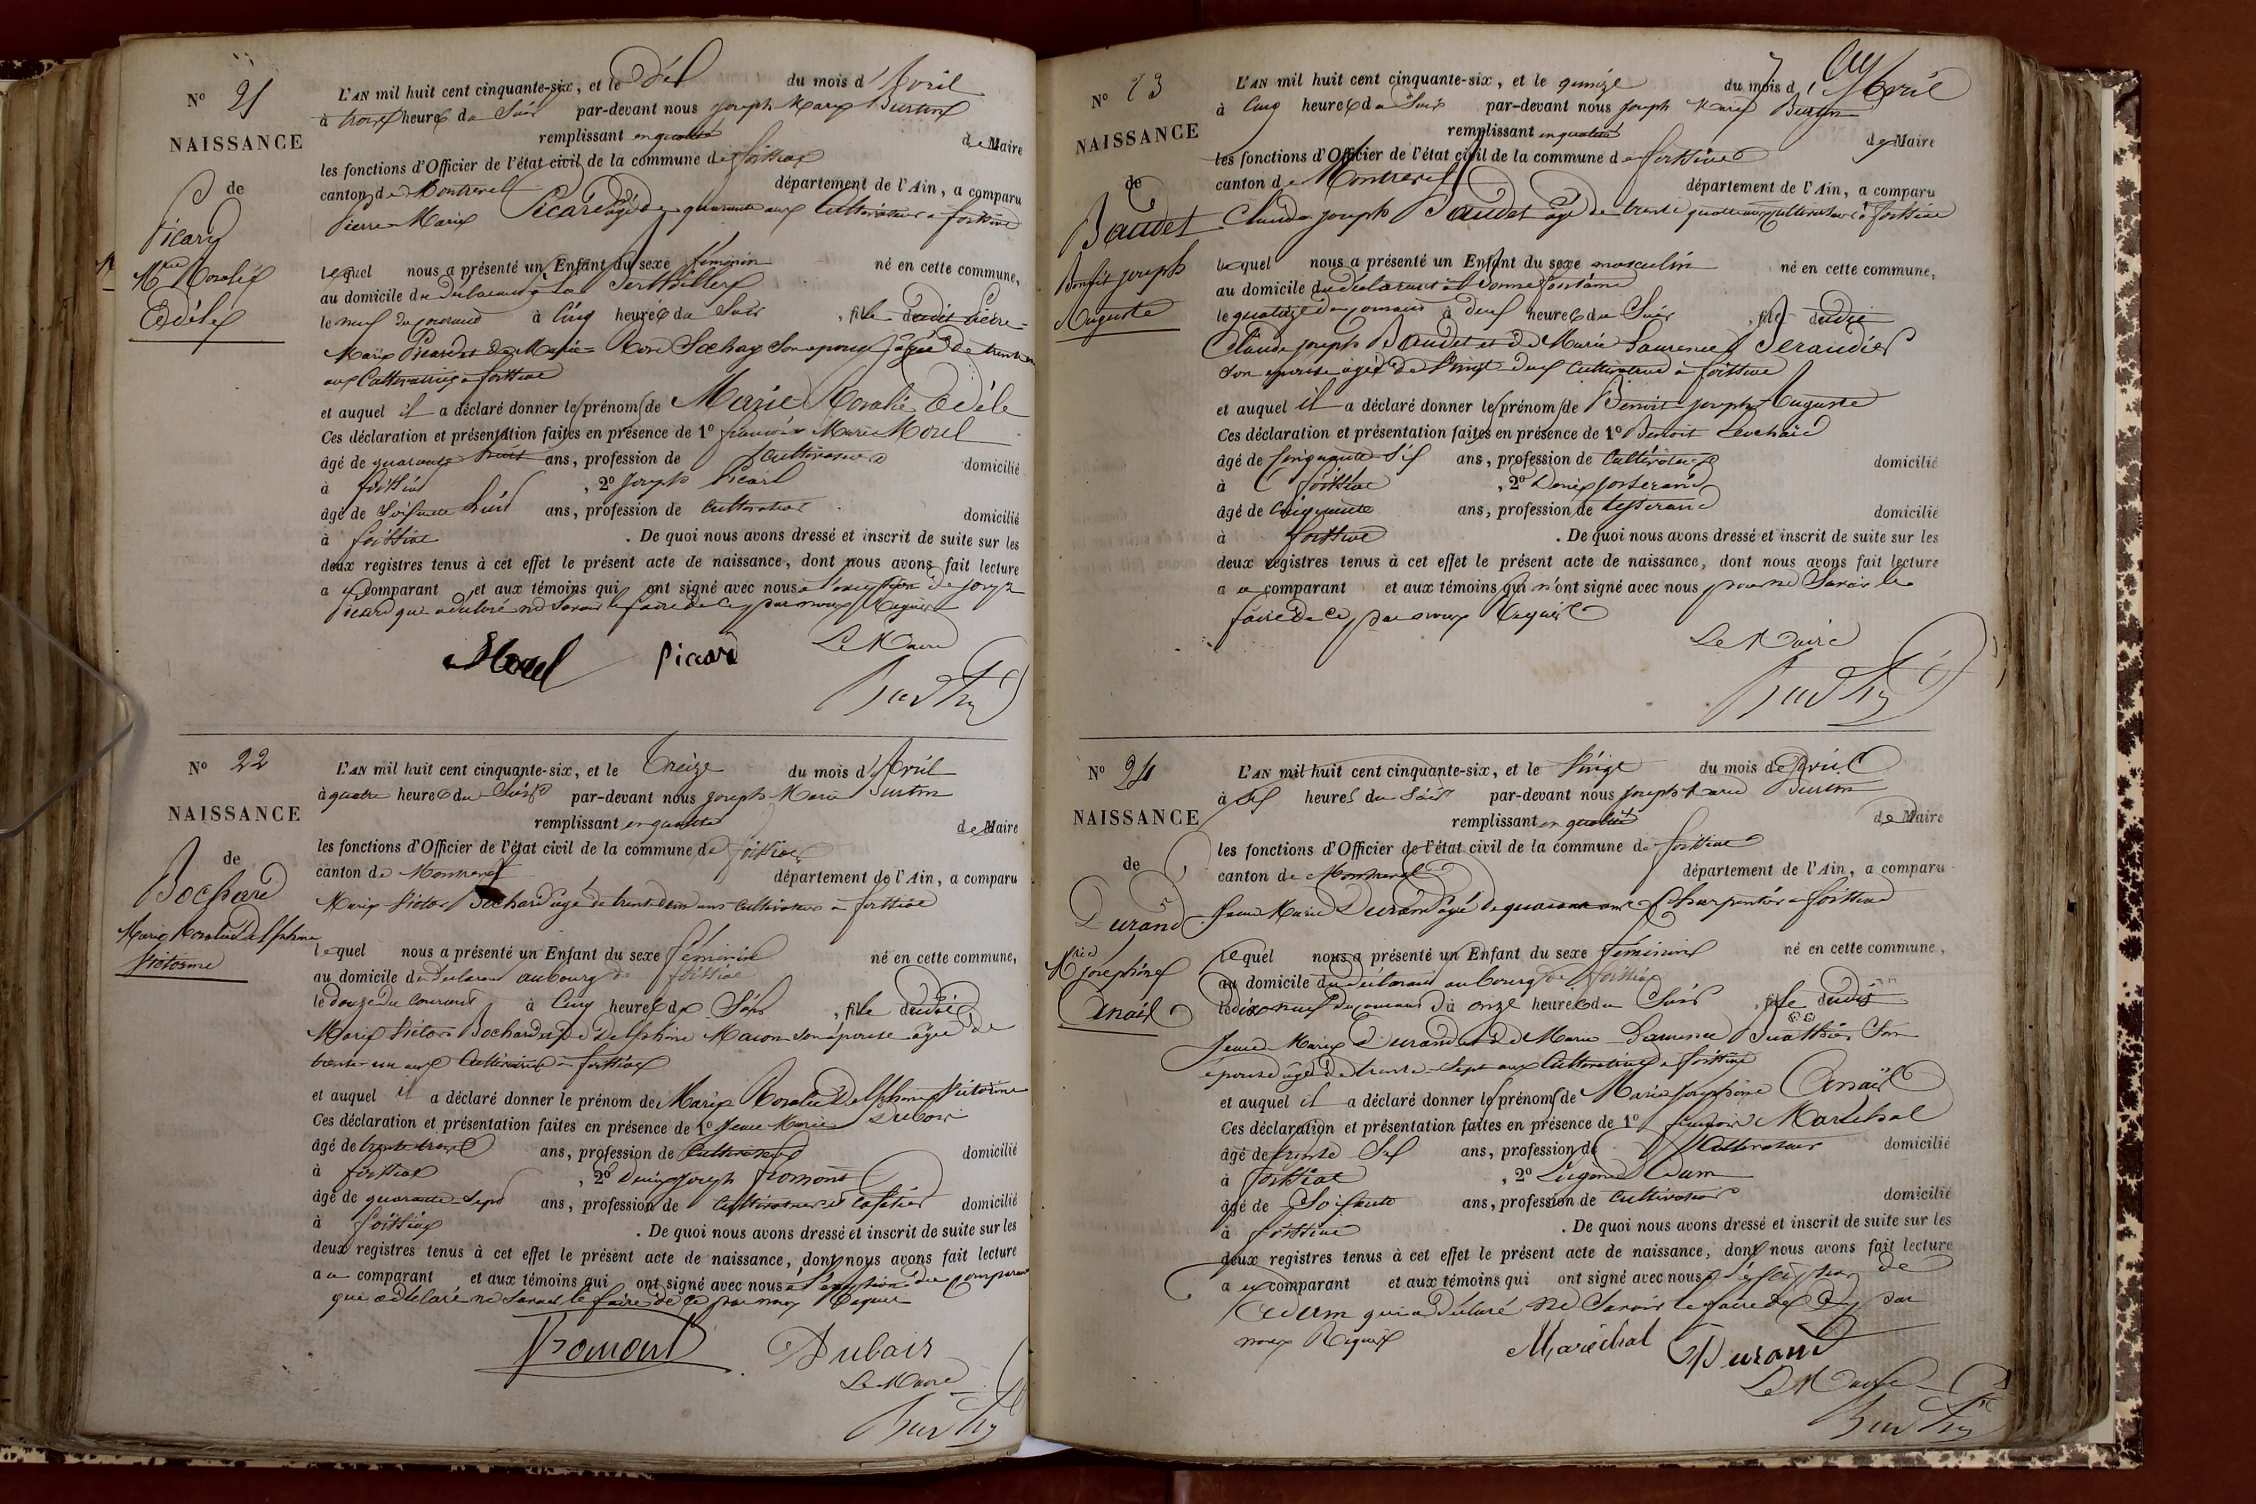 N° 21
NAISSANCE
de
Picard
Mie Rosalie
Edèle
L'AN mil huit cent cinquante-six, et le dix du mois d'Avril
à trois heures du Soir par-devant nous Joseph Marie Burtin
remplissant en qualité de Maire
les fonctions d'Officier de l'état civil de la commune de foissiat
canton de Montrevel département de l'Ain, a comparu
Pierre Marie Picard âgé de quarante ans Cultivateur à foissiat
lequel nous a présenté un Enfant du sexe féminin né en cette commune,
au domicile du déclarant
le neuf du courant à Cinq heures du Soir, fille dudit Pierre
Marie Picard et de Marie Rose Sochay Son épouse âgée de trente
ans Cultivatrice à foissiat
et auquel il a déclaré donner les prénoms de Marie Rosalie Edèle
Ces déclaration et présentation faites en présence de 1° françois Marie Morel
âgé de quarante huit ans, profession de Cultivateur domicilié
à foissiat, 2° Joseph Picard
âgé de Soixante huit ans, profession de Cultivateur domicilié
à foissiat. De quoi nous avons dressé et inscrit de suite sur les
deux registres tenus à cet effet le présent acte de naissance, dont nous avons fait lecture
au comparant et aux témoins qui ont signé avec nous à l'exception de Joseph
Picard qui a déclaré ne Savoir le faire de ce par nous Requis
Le Maire
Morel Picard
Burtin
N° 22
NAISSANCE
de
Bochard
Marie Rosalie Delphine
Victorine
L'AN mil huit cent cinquante-six, et le Treize du mois d'Avril
à quatre heures du Soir par-devant nous Joseph Marie Burtin
remplissant en qualité de Maire
les fonctions d'Officier de l'état civil de la commune de foissiat
canton de Montrevel département de l'Ain, a comparu
Marie Victor Bochard âgé de trente deux ans Cultivateur à foissiat
lequel nous a présenté un Enfant du sexe féminin né en cette commune,
au domicile du déclarant au bourg de foissiat
le douze du courant à Cinq heures du Soir, fille dudit
Marie Victor Bochard et de Delphine Macon son épouse âgée de
trente un ans Cultivatrice à foissiat
et auquel il a déclaré donner le prénom de Marie Rosalie Delphine Victorine
Ces déclaration et présentation faites en présence de 1° Jean Marie Dubois
âgé de trente trois ans, profession de Cultivateur domicilié
à foissiat, 2° Denis Joseph Fromont
âgé de quarante Sept ans, profession de Cultivateur et Cafetier domicilié
à foissiat. De quoi nous avons dressé et inscrit de suite sur les
deux registres tenus à cet effet le présent acte de naissance, dont nous avons fait lecture
au comparant et aux témoins qui ont signé avec nous à l'exception du Comparant
qui a déclaré ne Savoir le faire de ce par nous Requis
Fromont Dubois
Le Maire
Burtin
N° 23
NAISSANCE
de
Baudet
Benoit Joseph
Auguste
L'AN mil huit cent cinquante-six, et le quinze du mois d'Avril
à Cinq heures du Soir par-devant nous Joseph Marie Burtin
remplissant en qualité de Maire
les fonctions d'Officier de l'état civil de la commune de foissiat
canton de Montrevel département de l'Ain, a comparu
Claude Joseph Baudet âgé de trente quatre ans Cultivateur à foissiat
lequel nous a présenté un Enfant du sexe masculin né en cette commune,
au domicile du déclarant à Bonne fontaine
le quatorze du courant à deux heures du Soir, fils dudit
Claude Joseph Baudet et de Marie Laurence Peraudier
Son épouse âgée de Vingt deux Cultivatrice à foissiat
et auquel il a déclaré donner les prénoms de Benoit Joseph Auguste
Ces déclaration et présentation faites en présence de 1° Benoit
âgé de Cinquante Six ans, profession de Cultivateur domicilié
à foissiat, 2° Denis Josserand
âgé de Cinquante ans, profession de tisserand domicilié
à foissiat. De quoi nous avons dressé et inscrit de suite sur les
deux registres tenus à cet effet le présent acte de naissance, dont nous avons fait lecture
au comparant et aux témoins qui n'ont signé avec nous pour ne Savoir le
faire de ce par nous Requis
Le Maire
Burtin
N° 24
NAISSANCE
de
Durand
Mie Josephine
Anaïs
L'AN mil huit cent cinquante-six, et le Vingt du mois d'Avril
à Six heures du Soir par-devant nous Joseph Marie Burtin
remplissant en qualité de Maire
les fonctions d'Officier de l'état civil de la commune de foissiat
canton de Montrevel département de l'Ain, a comparu
Jean Marie Durand âgé de quarante ans Charpentier à foissiat
lequel nous a présenté un Enfant du sexe féminin né en cette commune,
au domicile du déclarant au bourg de foissiat
le dix neuf du courant à onze heures du Soir, fille dudit
Jean Marie Durand et de Marie Laurence Buathier Son
épouse âgée de trente Sept ans Cultivatrice à foissiat
et auquel il a déclaré donner les prénoms de Marie Josephine Anaïs
Ces déclaration et présentation faites en présence de 1° françois Maréchal
âgé de trente Six ans, profession de Cultivateur domicilié
à foissiat, 2° Eugène
âgé de Soixante ans, profession de Cultivateur domicilié
à foissiat. De quoi nous avons dressé et inscrit de suite sur les
deux registres tenus à cet effet le présent acte de naissance, dont nous avons fait lecture
au comparant et aux témoins qui ont signé avec nous à l'exception de
qui a déclaré ne Savoir le faire de ce par
nous Requis
Maréchal Durand
Le Maire
Burtin